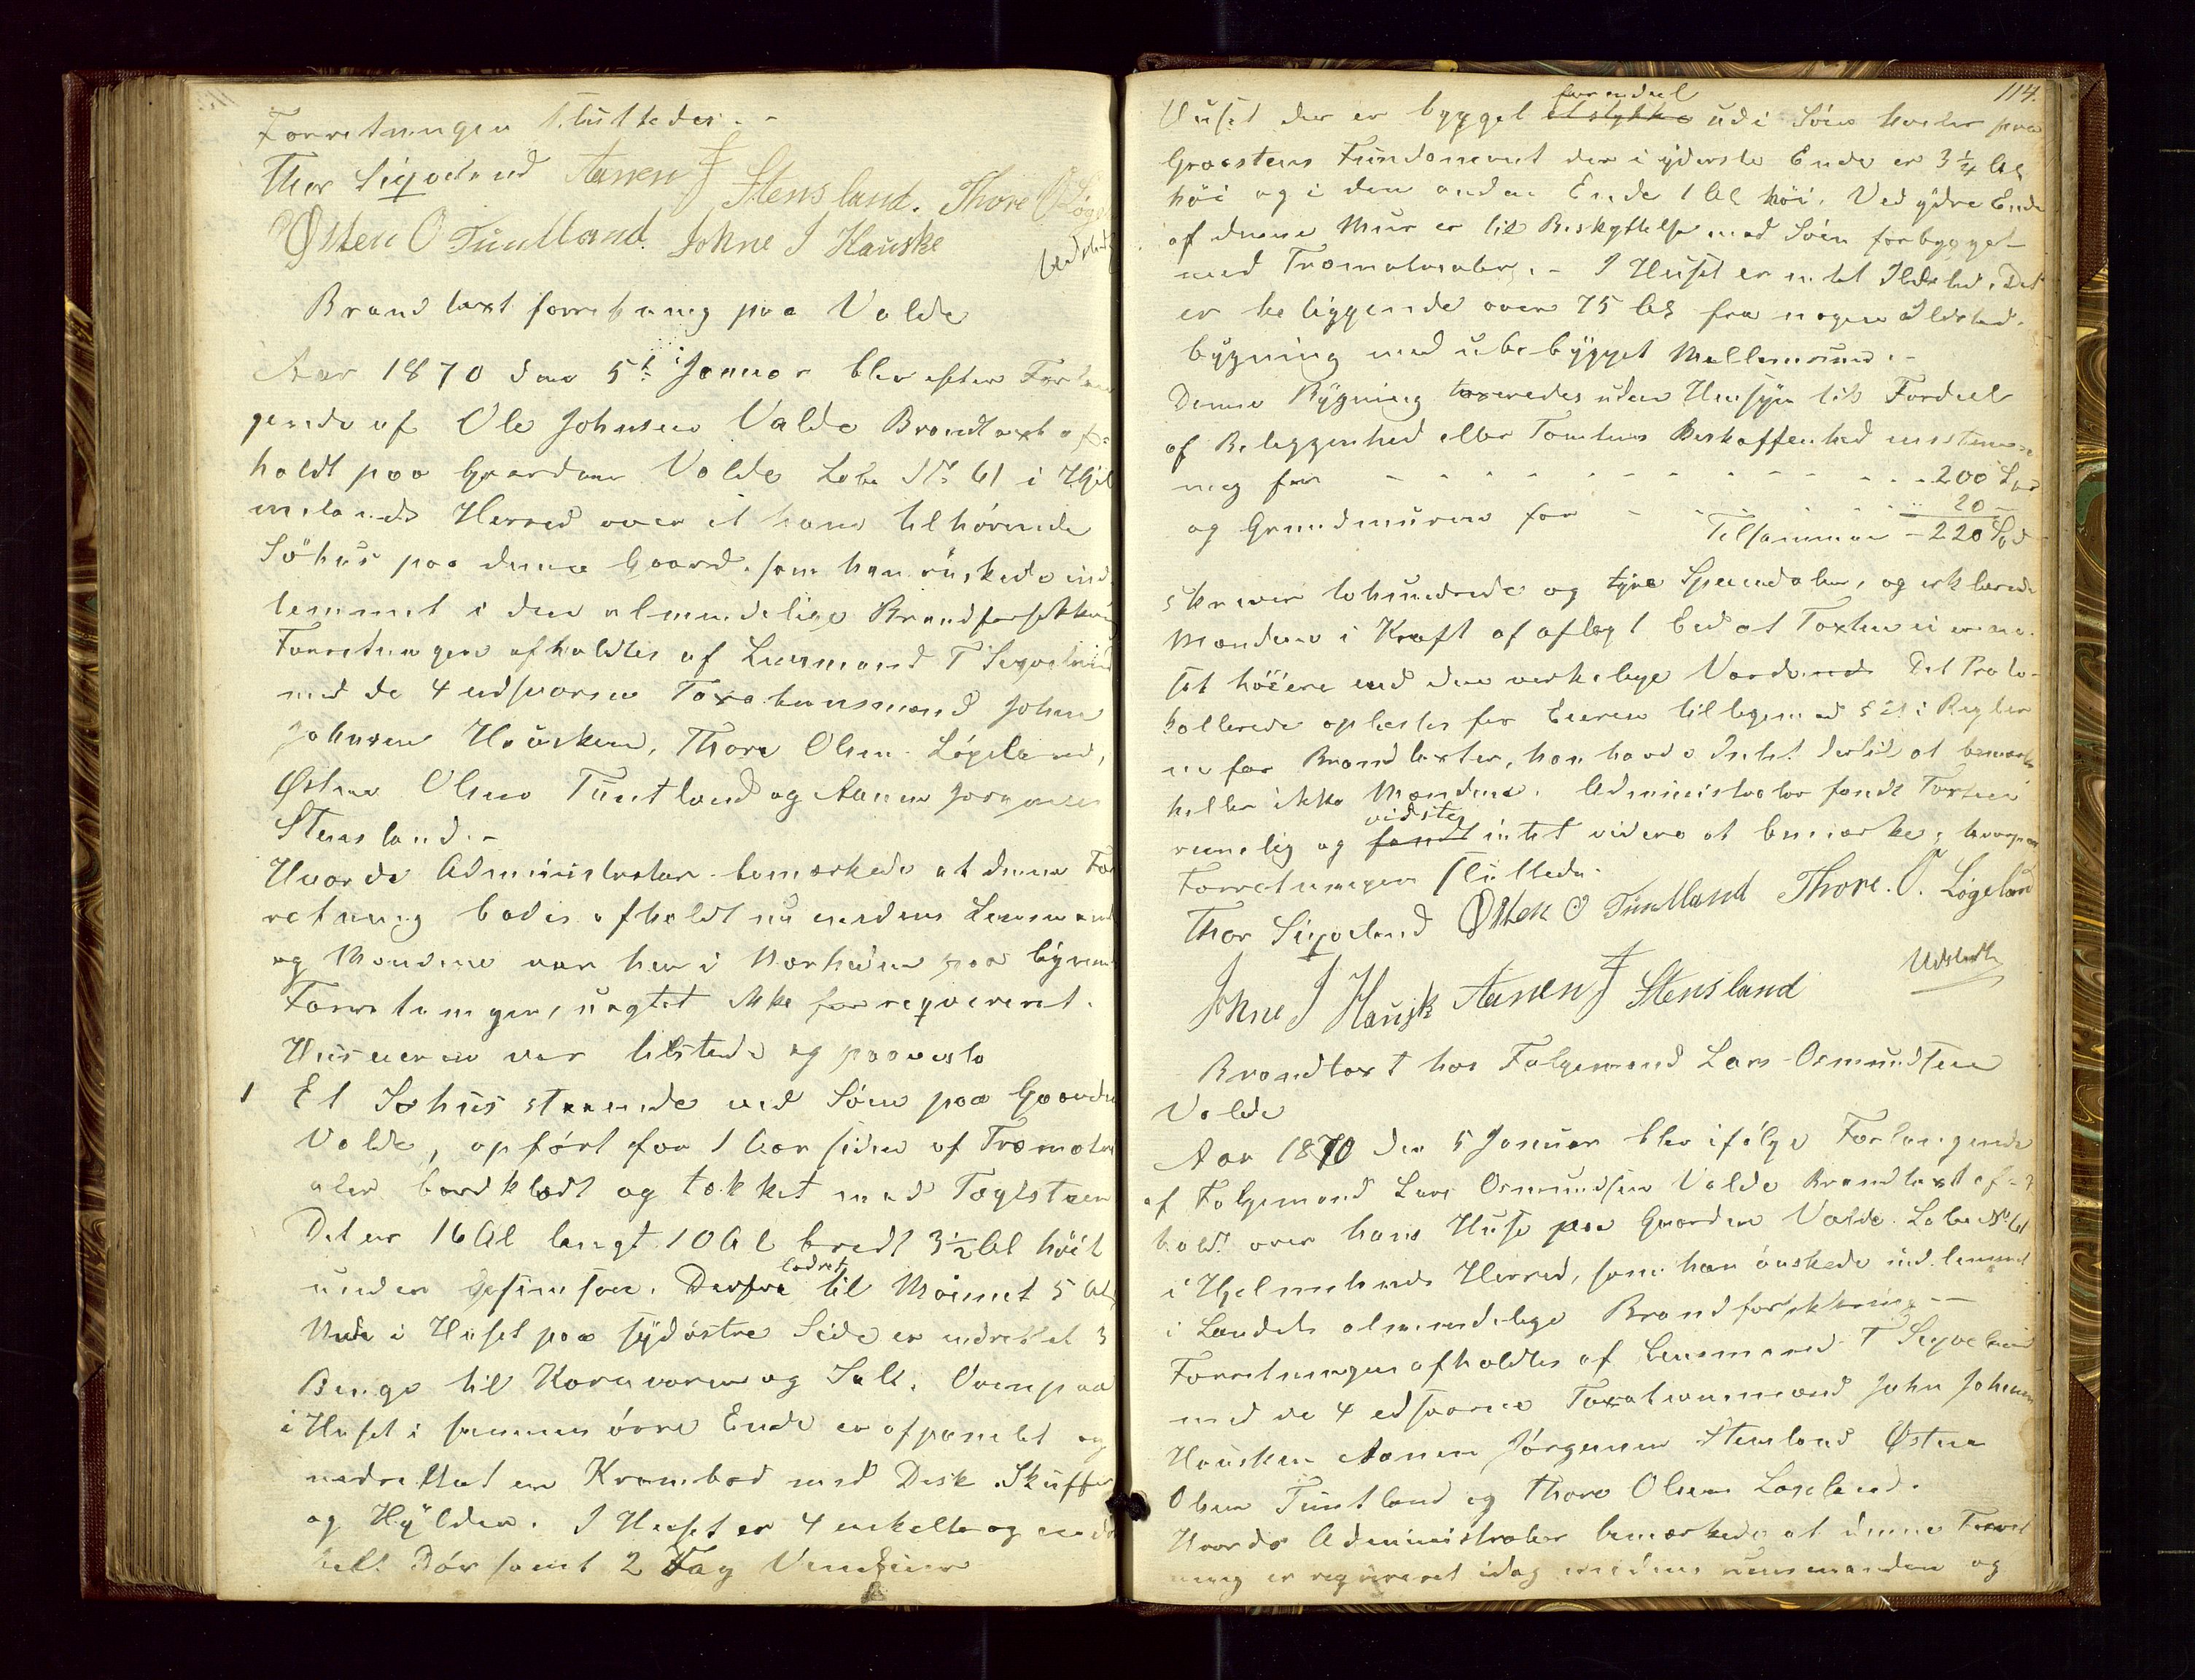 Forretningen sluttedes. -
Thor Sigvaland Aanen J Stensland. Thore O Løge
Østen O Tuntland. Johne J Hauske
Udskrevet
Brandtaxtforretning paa Valde
Aar 1870 den 5t Januar blev efter Forlan
gende af Ole Johnsen Valde Brandtaxt af-
holdt paa Gaarden Valde Løbe No 61 i Hjel
melands Herred over et ham tilhørende
Söhus paa denne Gaard, som han önskede ind-
lemmet i den almindelige Brandforsikkring
Forretningen afholdtes af Lensmand T Sigvaland
med de 4 edsvorne Taxationsmænd Johne
Johnsen Hausken, Thore Olsen Løgeland,
Østen Olsen Tuntland og Aanen Jørgensen
Stensland. -
Hvorda Administrator bemærkede at denne For
retning bødes afholdt nu medens Lensmand
og Mændene var her i Nærheden paa lignende
Forretninger, uagtet ikke før reqvireret.
Huseieren var tilstede og paaviste
1 Et Søhus staaende ved Söen paa Gaarden
Valde, opført for 1 Aar siden af Træmateri
aler bordklædt og tækket med Taglsteen
Det er 16 Al langt 10 Al bredt 3½ Al höit
under Gesimsen. Derfra lodret til Mönnet 5 Al,
Nede i Huset paa sydöstre Side er indrettet 3
Binge til Kornvarer og Salt. Ovenpaa
i Huset i samme övre Ende er afpanelet og
indrettet en Krambod med Disk, Skuffer
og Hylder. I Huset er 4 enkelte og en do
belt Dör samt 2 Fag Vinduer
114.
Huset der er bygget et stykke forendeel ud i Söen hviler paa
Graastens Fundament der i yderste Ende er 3¼ Al
höi og i den anden Ende 1 Al höi. Ved ydre Ende
af denne Mur er til Beskyttelse mod Söen forbygget
med Træmaterialer. - I Huset er intet Ildsted. Det
er beliggende over 75 Al fra nogen Ildsted-
bygning med ubebygget Mellemrum. -
Denne Bygning taxeredes uden Hensyn til Fordeel
af Beliggenhed eller Tomtens Beskaffenhed enstem-
mig for - - - - - - 200 Spd
og Grundmuren for - - - - 20 -
Tilsammen - 220 Spd
skriver tohundrede og tyve Speciedaler, og erklærede
Mændene i Kraft af aflagt Eed at Taxten ei er an-
sat höiere end den verkelige Værd. Det Proto-
kollerede oplæstes for Eieren tilligemed § 21 i Regler
ne for Brandtaxter, han havde Intet dertil at bemærke
heller ikke Mændene. Administrator fandt Taxten
rimelig og fandt vidste intet videre at bemærke, hvorpaa
Forretningen sluttedes.
Thor Sigvaland Østen O Tuntland Thore. O. Løgeland
Johne J Hausk Aanen J Stensland
Udskrevet
Brandtaxt hos Følgemand Lars Osmundsen
Valde
Aar 1870 den 5 Januar blev ifölge Forlangende
af Følgemand Lars Osmundsen Valde Brandtaxt af-
holdt over hans Huse paa Gaarden Valde Løbe No 61
i Hjelmelands Herred, som han önskede indlemmet
i Landets almindelige Brandforsikkring -
Forretningen afholdtes af Lensmand T Sigvaland
med de 4 edsvorne Taxationsmænd John Johnsen
Hausken Aanen Jörgensen Stensland Østen
Olsen Tuntland og Thore Olsen Løgeland.
Hvorda Administrator bemærkede at denne Forret
ning er reqvireret idag medens Lensmanden og